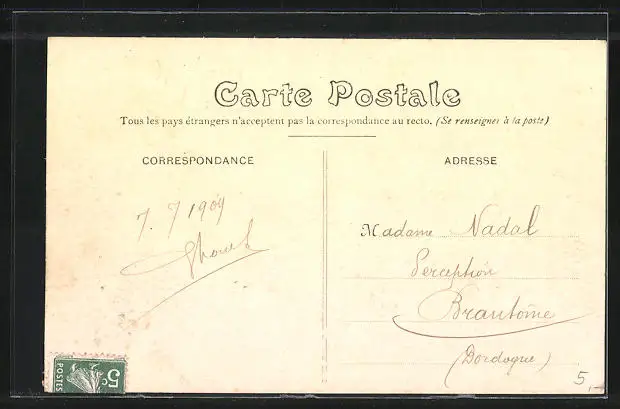 Carte Postale
Tous les pays étrangers n'acceptent pas la correspondance au recto. (Se renseigner à la poste)
CORRESPONDANCE
7. 7 1909
ADRESSE
Madame Nadal
Perception
Brantôme
(Dordogne)
POSTES 5c
5,-